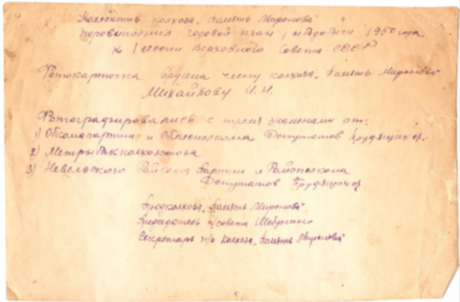 Коллектив колхоза „Память Миронова"
перевыполнил годовой план, 1950 года
К I сессии Верховного Совета СССР
Фотокарточка вручена члену колхоза „Память Миронова"
Михайлову И. И.
Фотографировались с тремя знаменами от:
1) Обкомапартии и Облисполкома Депутатов Трудящихся.
2) Метрыбаколхозсоюза
3) Невельского Райкома Партии и Райисполкома
Депутатов Трудящихся
Предколхоза „Память Миронова"
Председатель с/совета
Секретарь п/о колхоза „Память Миронова"